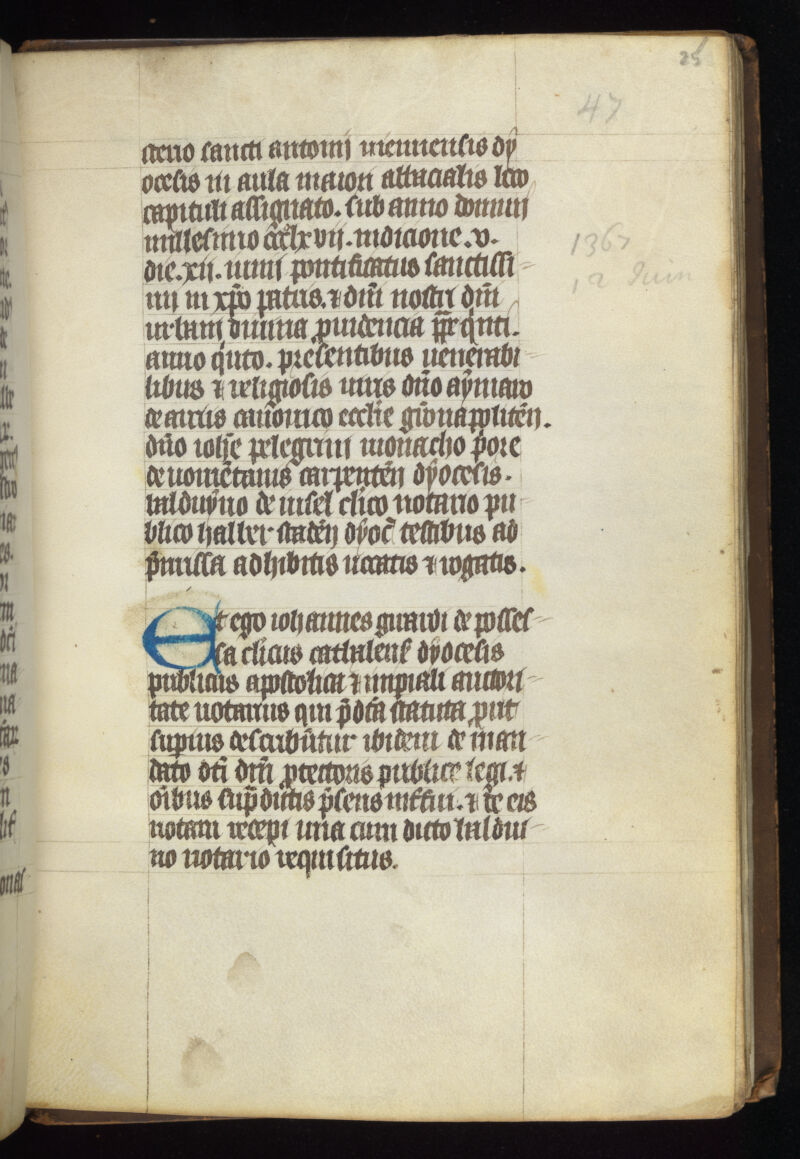 25
47
sterio sancti antonij viennensis dy
ocesis in aula maiori abbacialis loco
capituli assignato. sub anno domini
millesimo ccclxvij. indicione .v.
die .xij. iunij pontificatus sanctissi
mi in xpo patris. ⁊ dni nostri dni
urbani diuina puidencia pp quinti.
anno quinto. presentibus uenerabi
libus ⁊ religiosis uiris dno aymaro
canonico ecclie
dno iohe pelegrini monacho pore
de nometanis carpenten dyocesis.
balduyno de clico notario pu
blico dyoc testibus ad
pmissa adhibitis uocatis ⁊ rogatis.
1367
12 Juin
Et ego iohannes girardi de posses
sa clicus cathalen dyocesis
publicus apostolica ⁊ impiali auctori
tate notarius qui pdca statuta put
supius describuntur ibidem de man
dato dci dni ptectoris publice legi. ⁊
oibus supdictis psens intfui. ⁊ de eis
notam recepi una cum dicto baldui
no notario requisitus.